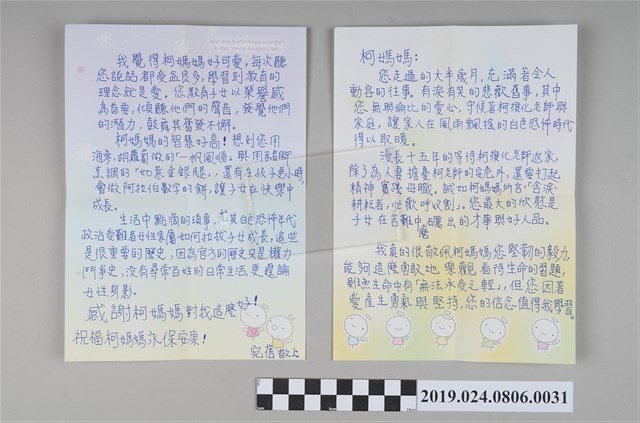 We are Earth happy angel
in the Smile Angel Club
我覺得柯媽媽好可愛，每次聽
您說話都受益良多，學習到教育的
理念就是愛。您教育子女以榮譽感
為自尊，傾聽他們的聲音，發覺他們
的潛力，鼓舞其奮發不懈。
柯媽媽的智慧好高！想到您用
海參、胡蘿蔔做的「一帆風順」與用豬腳
烹調的「如意金銀腿」，還有在孩子小時，
會做阿拉伯數字的餅，讓子女在快樂中
成長。
生活中點滴的瑣事，尤其白色恐怖年代
政治受難者女性家屬如何拉拔子女成長，這些
是很重要的歷史，因為官方的歷史只是權力
鬥爭史，沒有尋常百姓的日常生活，更遑論
女性身影。
感謝柯媽媽對我這麼好！
祝福柯媽媽永保安康！
宛蒨敬上
柯媽媽：
您走過的大半歲月，充滿著令人
動容的往事，有淚有笑的悲歡舊事，其中
您無與倫比的愛心，守候著柯旗化老師與
家庭，讓家人在風雨飄搖的白色恐怖時代
得以取暖。
漫長十五年的等待柯旗化老師返家，
除了為人妻擔憂柯老師的安危外，還要打起
精神 實踐母職。誠如柯媽媽所言：「含淚
耕耘者，必歡呼收割」。您最大的欣慰是
子女在苦難中磨礪出的才華與好人品。
我真的很敬佩柯媽媽您堅韌的毅力，
能夠這麼勇敢地、樂觀看待生命的習題，
雖然生命中有「無法承受之輕」，但您因著
愛產生勇氣與堅持，您的信念值得我學習。
2019.024.0806.0031